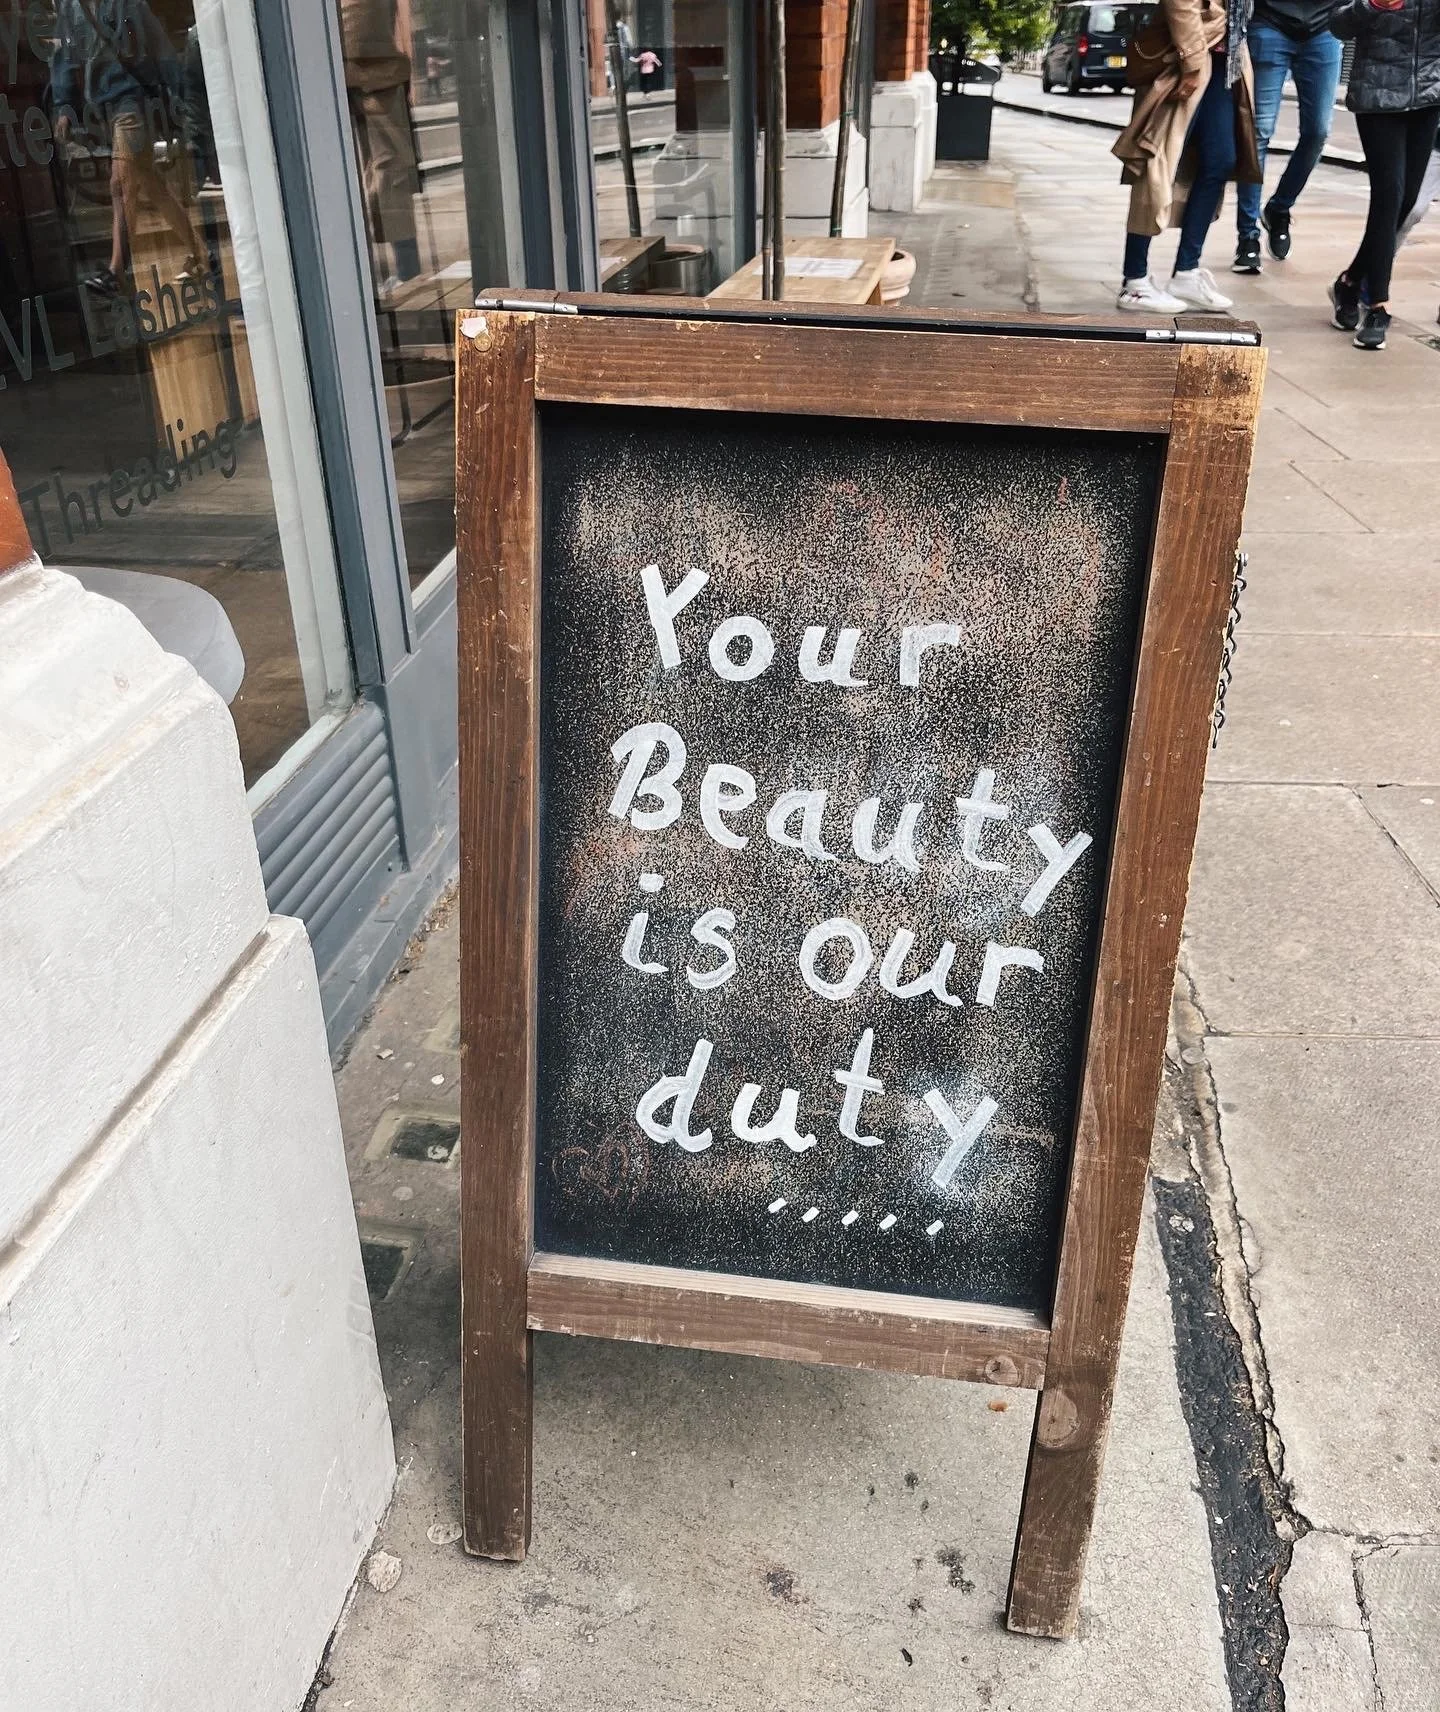 LVL Lashes
Threading
Your
Beauty
is our
duty
.....